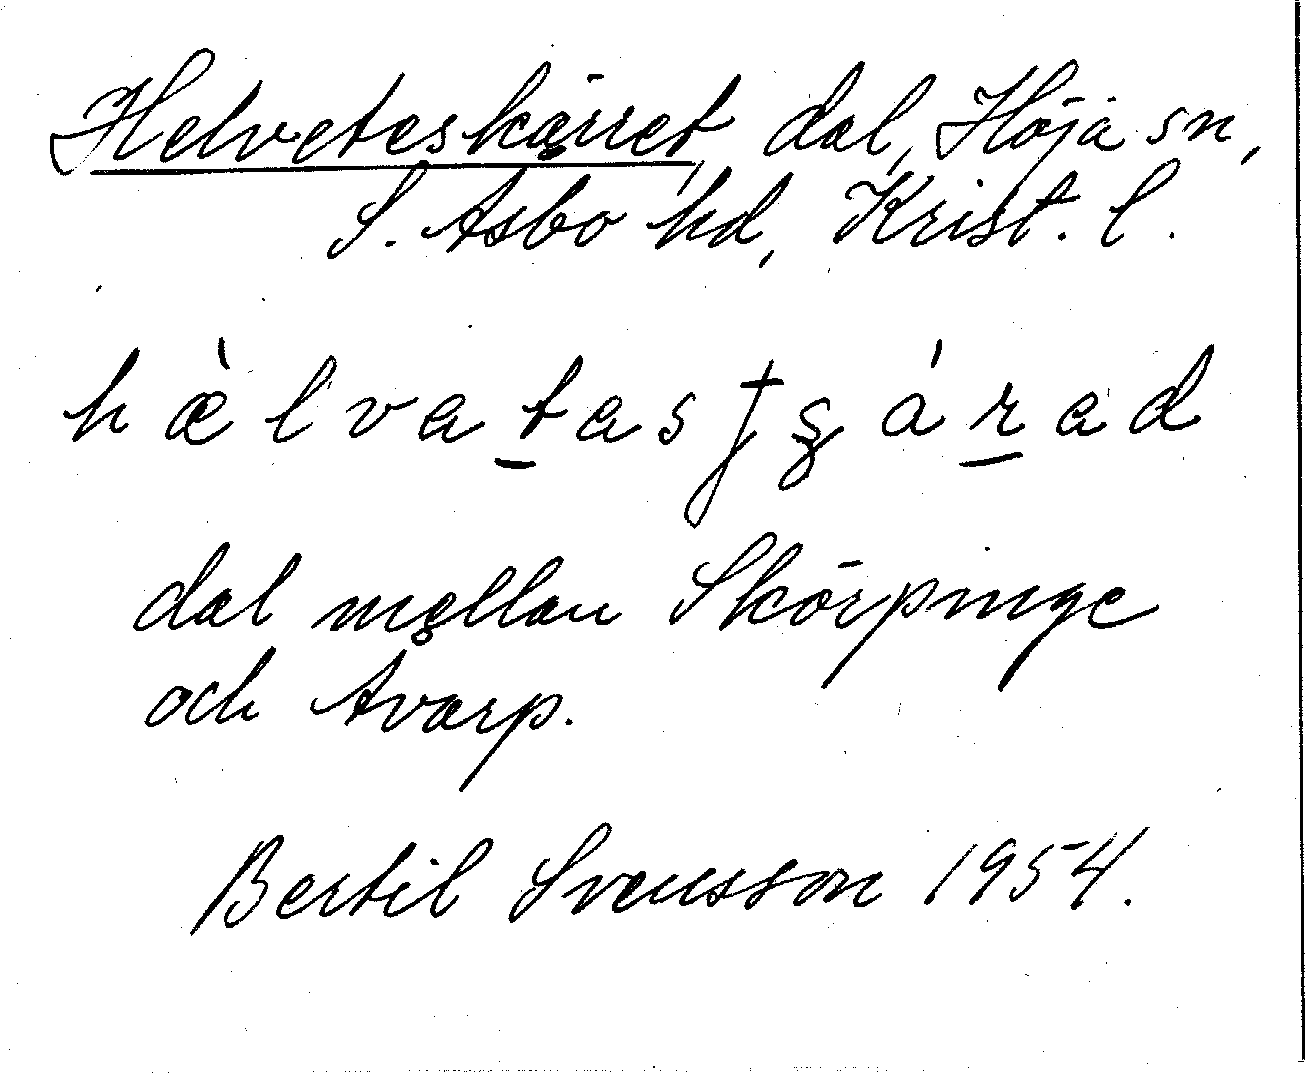 Helveteskärret, dal, Höja sn,
S. Åsbo hd, Krist. l.
hæ̀lvat̲asʈʂár̲ad
dal mellan Skörpinge
och Avarp.
Bertil Svensson 1954.